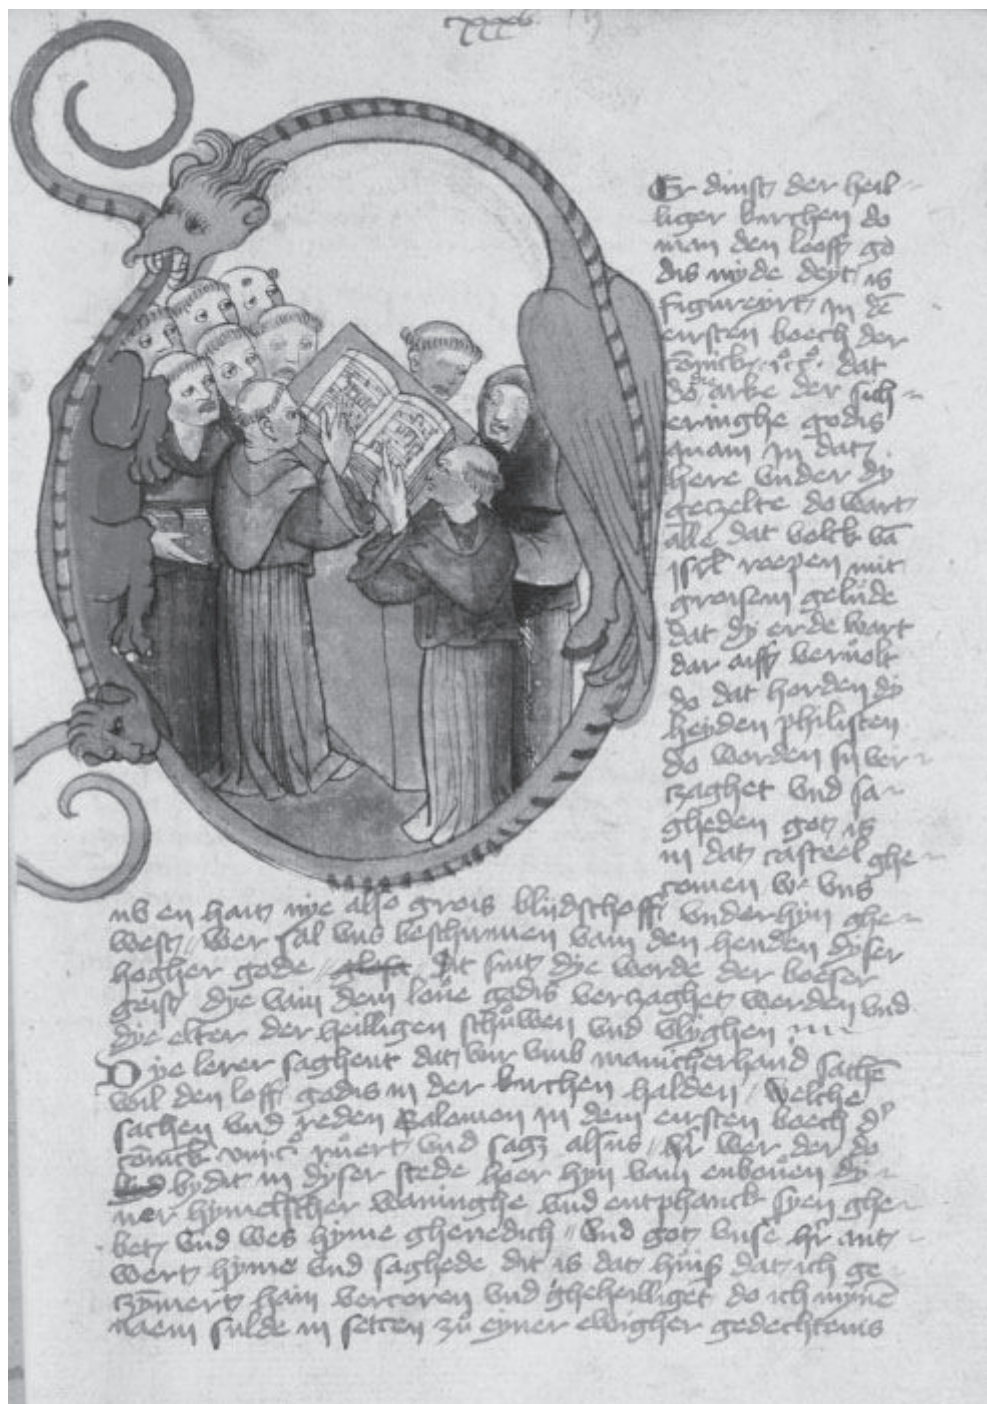 xxxv
Er dinst der heil
liger kirchen do
man den looff go
dis myde deyt is
figureyrt in dē
eirsten boech der
dat
do arke der sich
eringhe godis
quam in dat
here vnder dy
geczelte do wart
alle dat volck vā
isrl roepen mit
groisem gelude
dat dy erde wart
dar aiff vervolt
do dat horden dy
heyden philisten
do worden sy ver
czaghet vnd sa
gheden got is
in dat casteel ghe
comen we vns
nv en hait nye also grois blijdschoff vnderhyn ghe
west wer sal vns beschirmen vam den henden dyser
hogher gode glosa Dit sint dye worde der boeser
geist dye vam dem loue godis verczaghet werden vnd
dye elter der heilligen schuwen vnd vlyghen
Dye lerer saghent dat vmb manicherhand sachē
wil den loff godis in der kirchen halden welche
sachen vnd reden Salomon in dem eirsten boech d'
ruert vnd sagz alsus hr wer der do
vnd bydit in dyser stede hoer hyn vam enbouen dy
ner hymelscher waninghe vnd entphanck syen ghe
bet vnd wes hyme ghenedich vnd got vnse hr ant
wert hyme vnd saghede dit is dat huis dat ich ge
czymert hain vercoren vnd gheheilliget do ich mynē
naem sulde in setten zu eyner ewigher gedechtenis